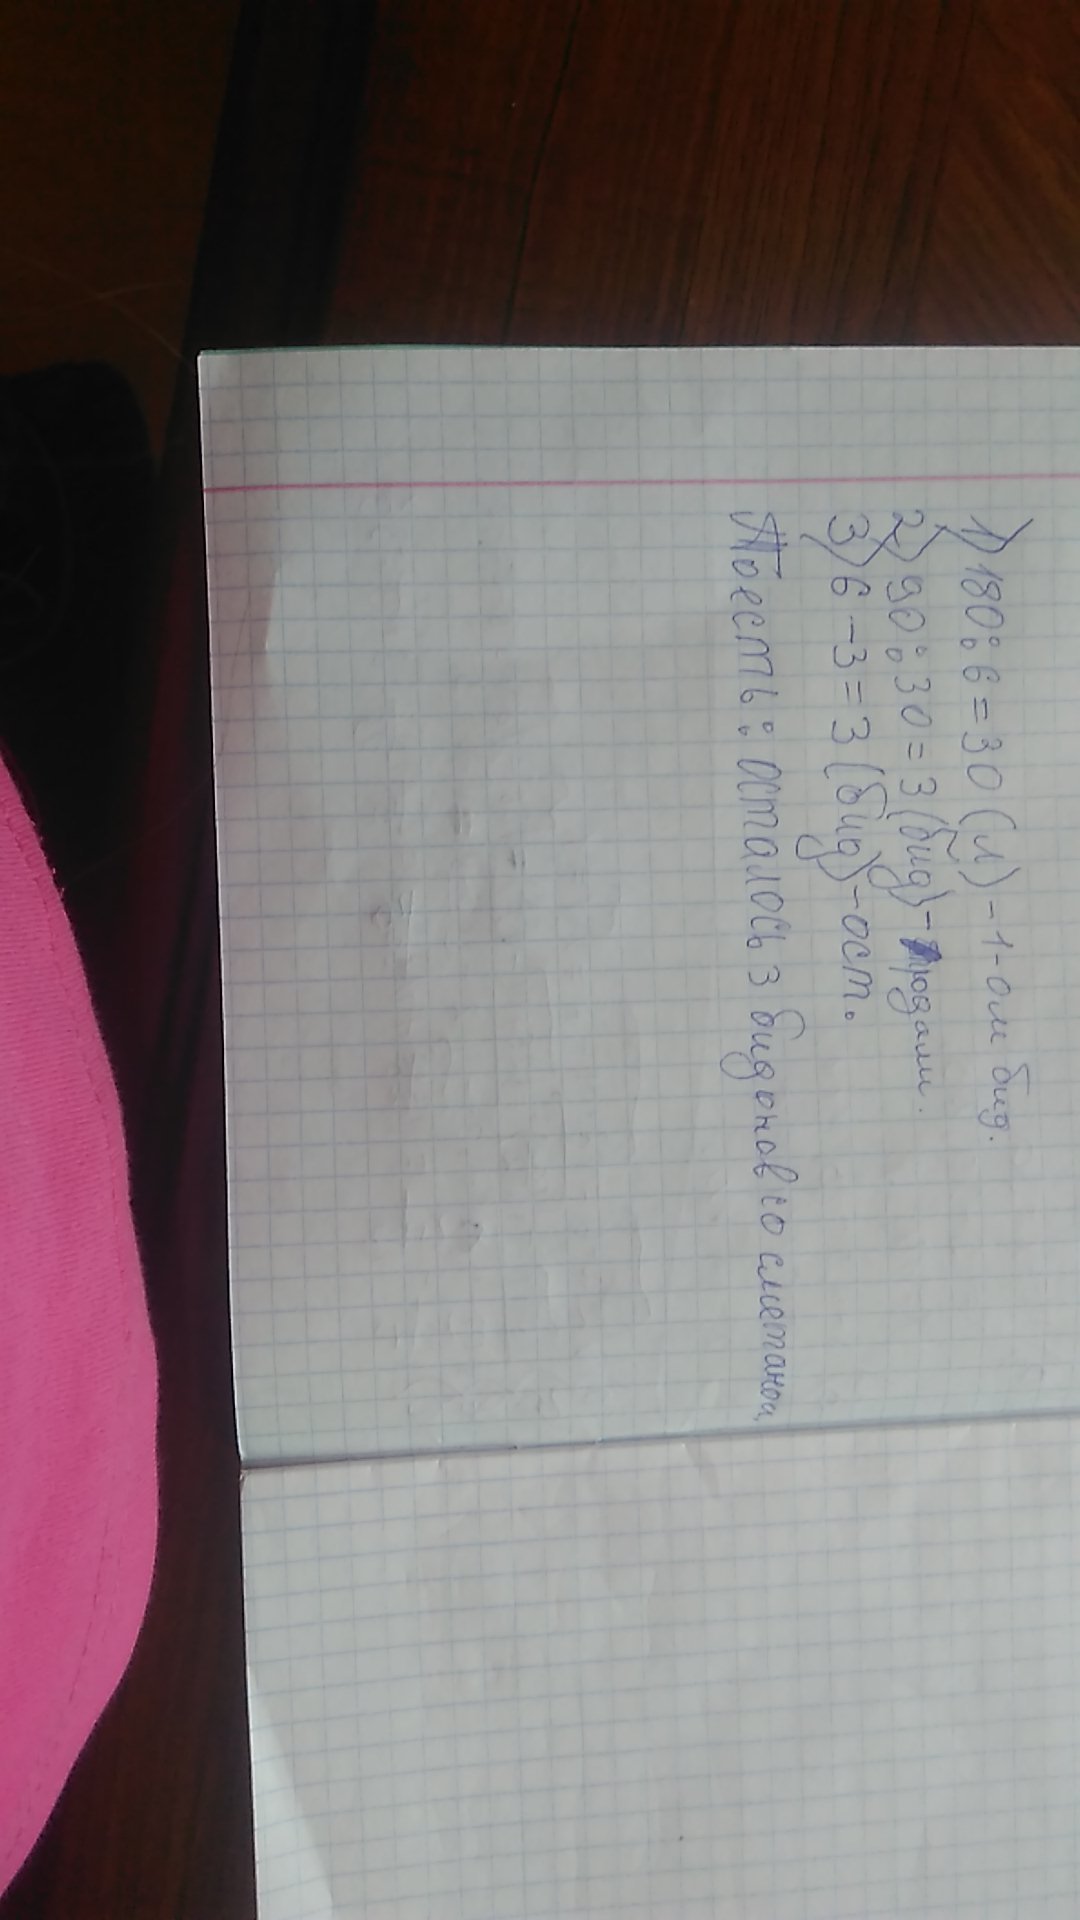 1) 180:6=30 (л)-1-ом бид.
2) 90:30=3 (бид)-продали.
3) 6-3=3 (бид)-ост.
осталось 3 бидонов со сметаной